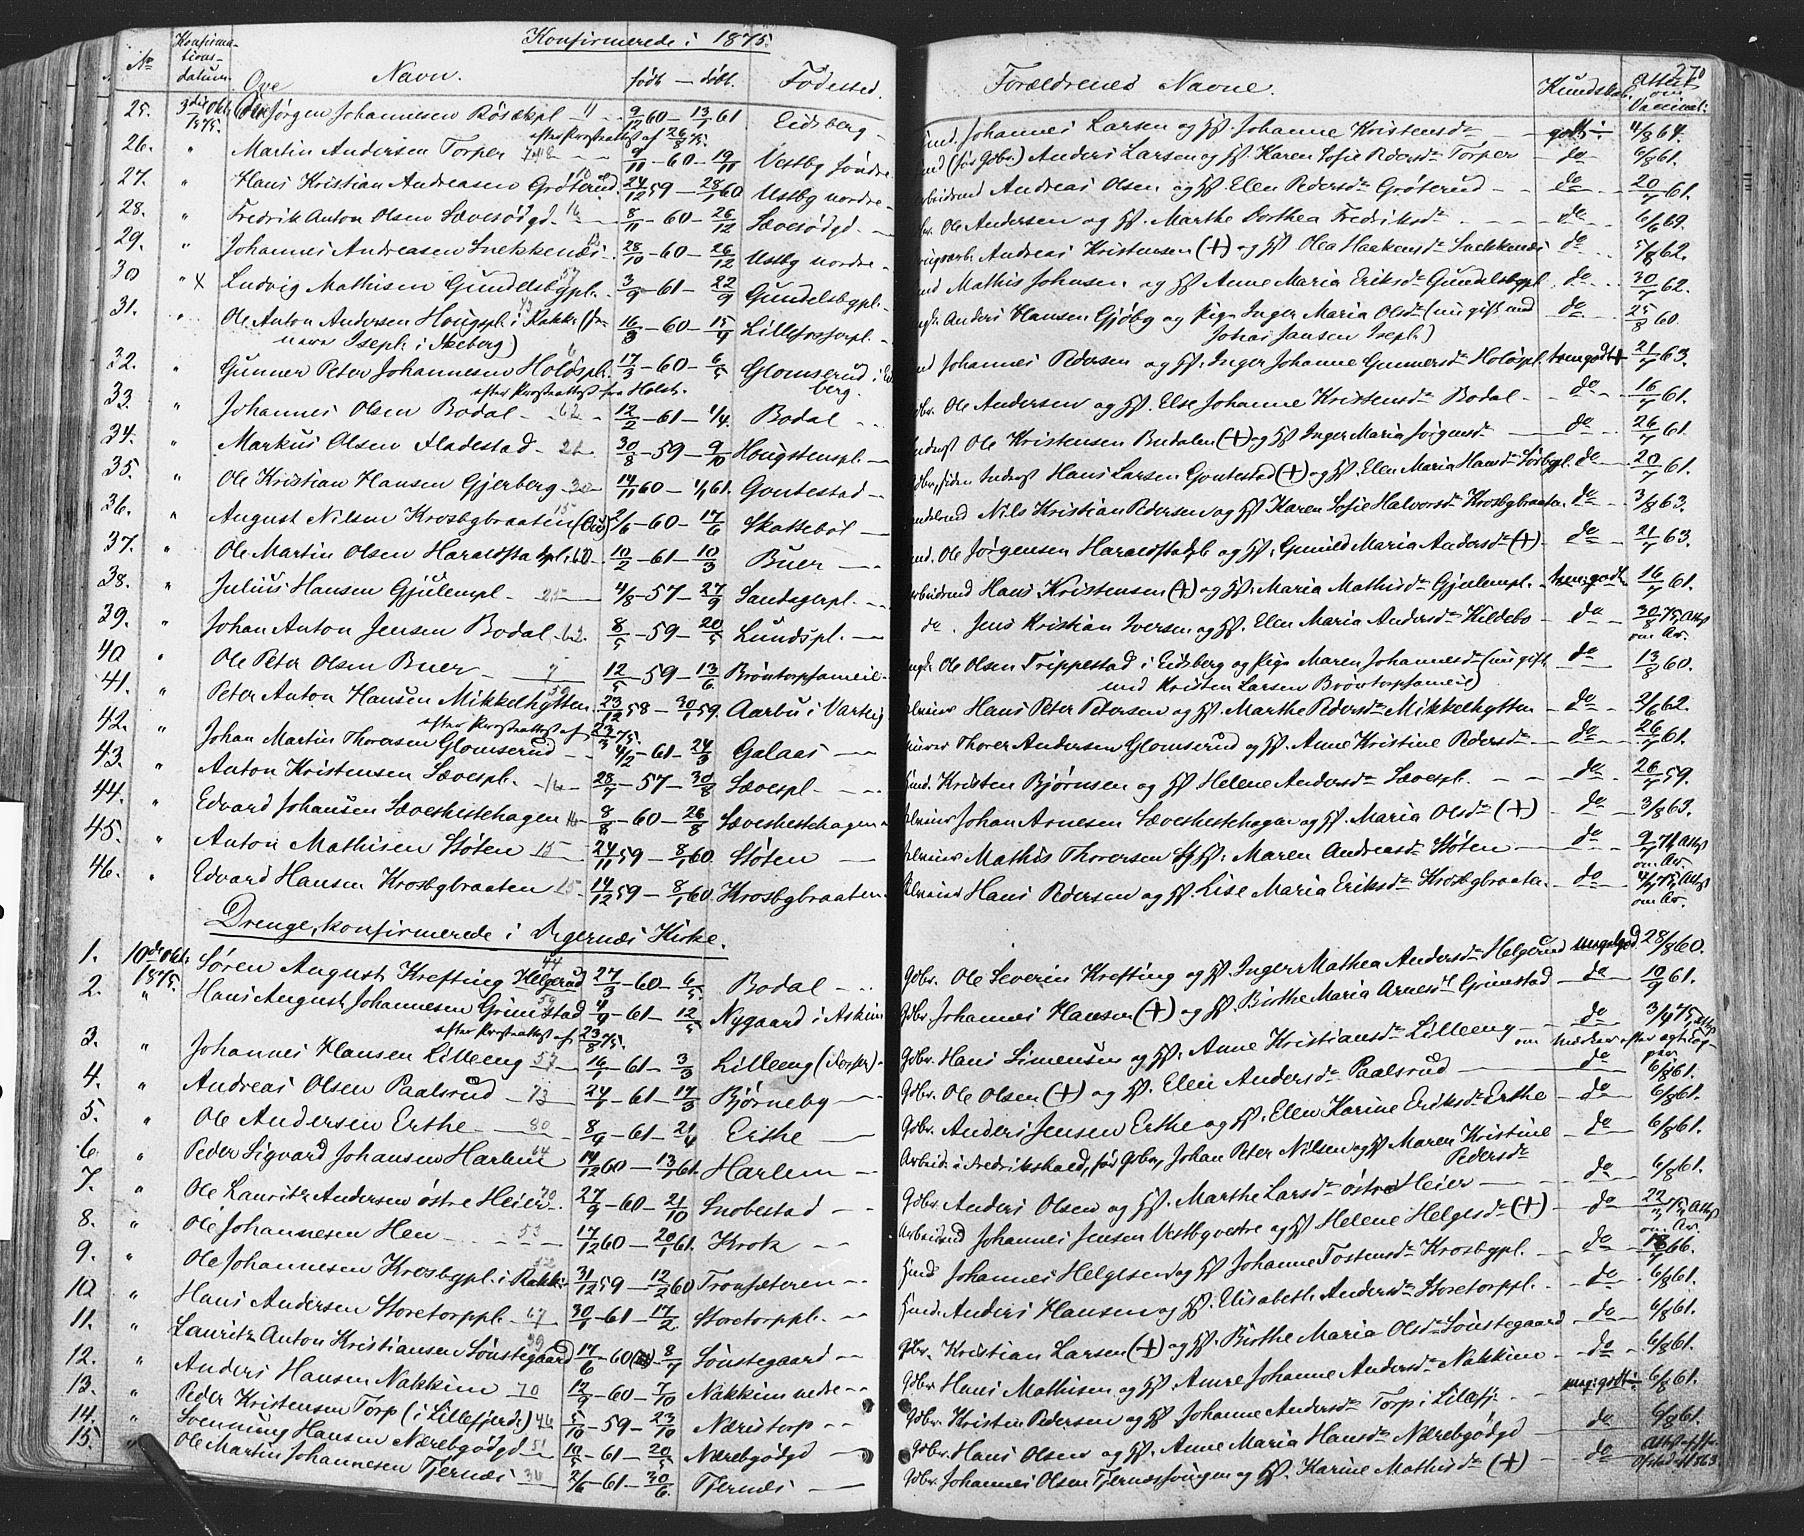 Konfirmerede i 1875.
270
No Konfirmationsdatum. Navn. født — døbt. Fødested. Forældrenes Navne. Kundskab. Attest om Vaccinat:
25. 3die Okt. 1875. Ove Jørgen Johannesen Röisækpl 9/12 60 — 13/1 61 Eidsberg — Johannes Larsen og H. Johanne Kristensdr — godt ÷ 4/8 64.
efter Præstattest af 26/8 75.
26. " Martin Andersen Torper 9/11 — 60 — 19/11 Vestby søndre — (før Gdbr.) Anders Larsen og H. Karen Sofie Pedersdr Torper — do — 6/8 61.
27. " Hans Kristian Andreasen Grøterud 24/12 59 — 28/1 60 Ustby nordre — Andreas Olsen og H. Elen Pedersdr Grøterud — do 20/7 61.
28. " Fredrik Anton Olsen Sævesødgd. 8/11 — 60 — 26/12 Sævesødgd — Ole Andersen og H. Marthe Dorthea Fredriksdr — do 6/6 69.
29. " Johannes Andreasen Snekkenæs 28/10 — 60 — 26/12 Ustby nordre — Andreas Kristensen (+) og H. Olea Haakensdr Snekkenæs do 5/8 62.
30 " x Ludvig Mathisen Gundelsbypl. 57 3/9 — 61 — 22/9 Gundelsbypl. — Mathis Johnsen og H. Anne Maria Eriksdr Gundelsbypl. do 30/7 62.
31. " Ole Anton Andersen Hougpl. i Rakke. 16/3 — 60 — 15/4 Lilletorpspl. — Anders Hansen Gjøby og Pige Inger Maria Olsdr (nu gift med do 25/8 60.
Johas Jansen Isepl.)
32. " Gunner Peter Johannesen Holöspl. 6 17/3 — 60 — 6/5 Glomserud i Eidsberg. Johannes Pedersen og H. Inger Johanne Gunnersdr Holöspl. temgodt + 21/7 63.
efter Præstattest fra Holst.
33. " Johannes Olsen Bodal — 62 — 12/2 — 61 — 1/4. Bodal — Ole Andersen og H. Else Johanne Kristensdr Bodal — do 16/7 61.
34. " Markus Olsen Fladestad — 21. 30/8 — 59 — 9/10 Hougstenspl. — Ole Kristensen Budalen (+) og H. Inger Maria Jörgensdr — do — 26/7 61.
35. " Ole Kristian Hansen Gjerberg — 30 — 14/11 60 — 1/1 61. Gontestad — Hans Larsen Gontestad (+) og H. Elen Maria Hansdr do 20/7 61.
36. " August Nilsen Krosbybraaten 15 2/6 — 60 — 17/6 Skattebøl — Nils Kristian Pedersen og H. Karen Sofie Halvorsdr Krosbybraaten do — 3/8 63.
37. " Ole Martin Olsen Haraldstadpl. 60 — 10/2 — 61 — 10/3 Buer — Ole Jørgensen Haraldstadpl. og H. Gunild Maria Andersdr (+) — do 21/7 63.
38. " Julius Hansen Gjulempl. — 25 — 4/8 — 57 — 27/9 Sandagerpl. — Hans Kristensen (+) og H. Maria Mathisdr Gjulempl. — tem: godt 16/7 61.
39. " Johan Anton Jensen Bodal 62. 8/5 — 59 — 20/5 Lundspl. — do. Jens Kristian Iversen og H. Elen Maria Andersdr Hildebo — do 30/8 75, Attest om Ar.
40 " Ole Peter Olsen Buer — 7 12/5 — 59 — 13/6 Bröntorpsameie — Ole Olsen Trippestad i Eidsberg og Pige Maren Johannesdr (nu gift do 13/8 60.
med Kristen Larsen Bröntorpsameie)
41. " Peter Anton Hansen Mikkelhytten 59 23/12 58 — 30/1 59. Aarbu i Varteig — Hans Peter Petersen og H. Marthe Pedersdr Mikkelhytten — do 2/6 62.
efter Præstattest af 23/3 75.
42. " Johan Martin Thoresen Glomserud 4/2 — 61 — 24/3 Galaas — Thorer Andersen Glomserud og H. Anne Kristine Pedersdr — do 26/7 61.
43. " Anton Kristensen Sævespl. — 14 — 28/7 — 57 — 30/8 Sævespl — Kristen Björnsen og H. Helene Andersdr Sævespl. — do 26/7 59.
44. " Edvard Johansen Sæveshestehagen 16 8/8 — 60 — 26/8 Sæveshestehagen Johan Arnesen Sæveshestehagen og H. Maria Olsdr (+) — do — 3/8 63.
45. " Anton Mathisen Støten — 15 — 24/11 59 — 8/1 60. Støten — Mathis Thoresen og H. Maren Andreasdr Støten — do — Attest om Ar.
46. " Edvard Hansen Krosbybraaten 15 14/12 59 — 8/1 60. Krosbybraaten — Hans Pedersen og H. Lise Maria Eriksdr Krosbybraaten. — do 4/9 75, Attest om Ar.
Drenge, konfirmerede i Degernæs Kirke.
1. 10de Okt. 1875. Søren August Krefting Helgerud 44 27/3 — 60 — 6/5 Bodal — Gdbr. Ole Severin Krefting og H. Inger Mathea Andersdr Helgerud megetgod 28/8 60.
2. " Hans August Johannesen Grimstad 59 4/4 — 61 — 12/5 Nygaard i Askim Gdbr. Johannes Hansen (+) og H. Birthe Maria Arnesdr Grimstad — do 10/9 61.
efter Præstattest af 23/8 75.
3. " Johannes Hansen Lilleeng 57 16/1 — 61 — 3/3 Lilleeng (Torper) — Gdbr. Hans Simensen og H. Anne Kristiansdr Lilleeng — do 3/4 75, Attest
om Mærker efter
4. " Andreas Olsen Paalsrud — 73 24/1 — 61 — 17/3 Bjørneby — Gdbr. Ole Olsen (+) og H. Elen Andersdr Paalsrud — do 6/8 61.
5. " Ole Andersen Erthe — 80 — 8/4 — 61 — 21/4 Erthe — Gdbr. Anders Jensen Erthe og H. Elen Karine Eriksdr Erthe do 6/8 61.
6. " Peder Sigvard Johansen Harlem 64 14/12 60 — 13/1 61. Harlem — Arbeid. i Fredrikshald, før Gdbr. Johan Peter Nilsen og H. Maren Kristine Pedersdr do 6/8 61.
7. " Ole Lauritz Andersen østre Heier 70 27/9 — 60 — 21/10 Snobestad — Gdbr. Anders Olsen og H. Marthe Larsdr østre Heier — do 6/8 61.
8. " Ole Johannesen Hen — 53 — 17/12 60 — 20/1 61. Krok — Arbeidsmd Johannes Jensen Vestby vestre og H. Helene Helgesdr (+) — do 22/7 75, Attest om Ar.
9. " Ole Johannesen Krosbypl. i Rakke. 52 31/12 59 — 12/2 60 Tronsæteren — Husmd Johannes Helgesen og H. Johanne Tostensdr Krosbypl. — do 18/7 66.
10. " Hans Andersen Storetorppl — 67 — 30/1 — 61 — 17/2 Storetorppl. — Husmd. Anders Hansen og H. Elisabeth Andersdr Storetorppl. — do — 6/8 61.
11. " Lauritz Anton Kristiansen Sønstegaard 39 17/6 — 60 — 8/7 Sønstegaard — Gdbr. Kristian Larsen (+) og H. Birthe Maria Olsdr Sønstegaard — do 6/8 61.
12. " Anders Hansen Nakkim — 70 12/9 — 60 — 7/10 Nakkim nedre — Gdbr. Hans Mathisen og H. Anne Johanne Andersdr Nakkim — do — 6/8 61.
13. " Peder Kristensen Torp (i Lillefjerde) 46 5/10 — 59 — 23/10 Næristorp — Gdbr. Kristen Pedersen og H. Johanne Andersdr Torp i Lillefj. — meg: godt ÷ 6/8 61.
14. " Svennung Hansen Nærebgødgd 51 10/5 — 61 — 20/5 Nærebgødgd — Gdbr. Hans Olsen og H. Anne Maria Hansdr Nærebgødgd — do 6/8 61.
15. " Ole Martin Johannesen Tjernæs 36 2/6 — 61 — 30/6 Tjernæs — Gdbr. Johannes Olsen Tjernæssvingen og H. Karine Mathisdr (+) — do